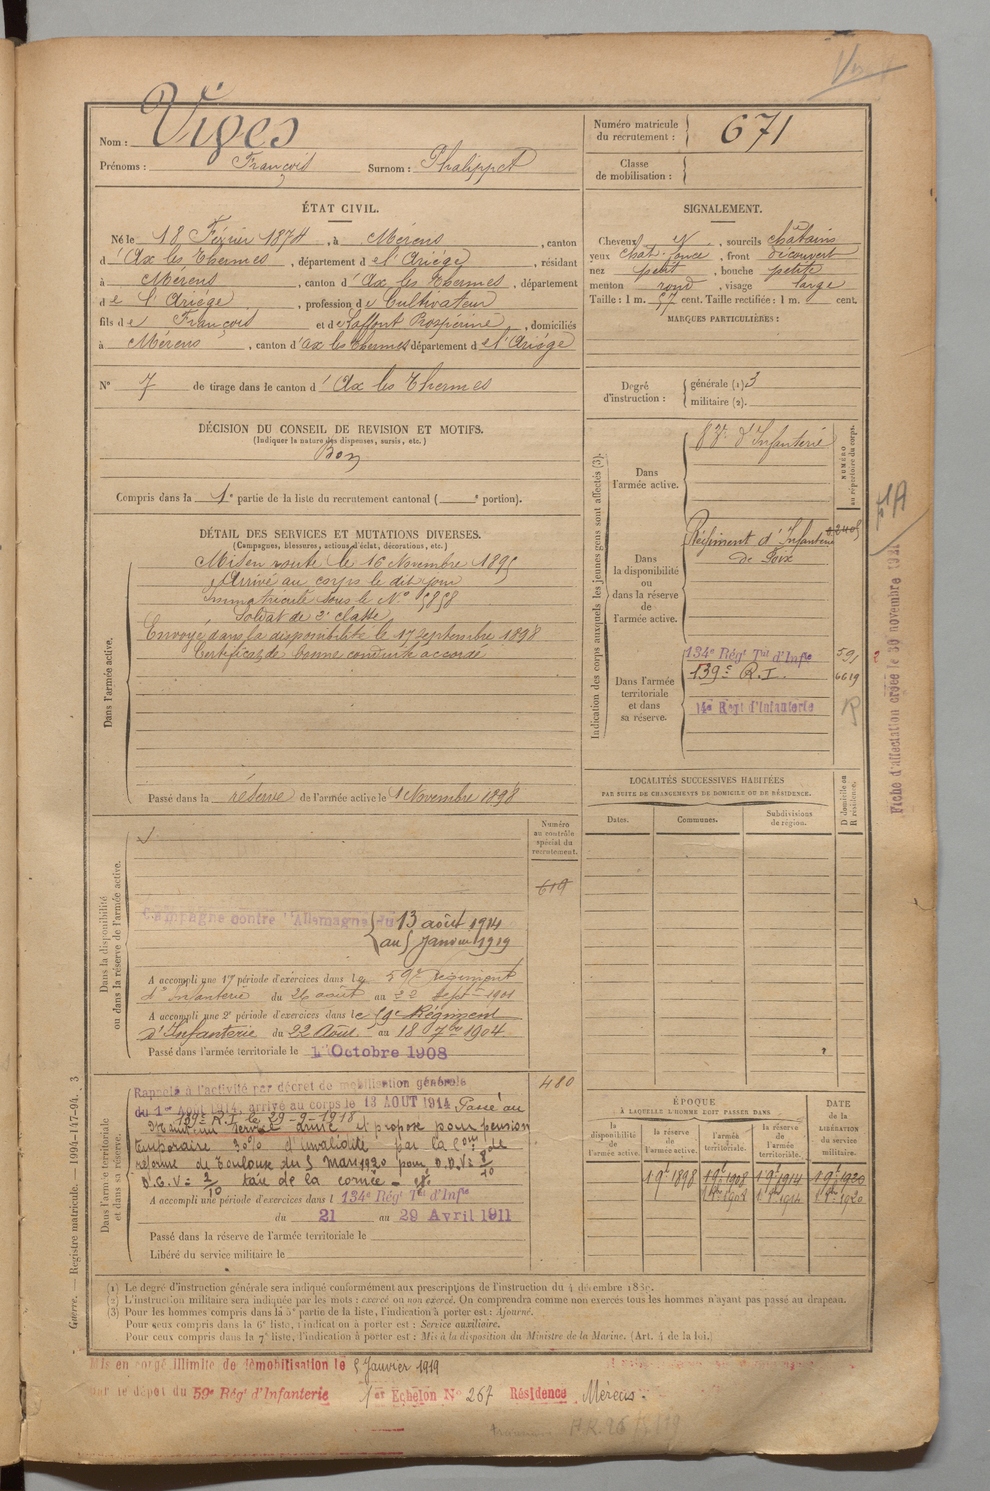 Nom : Viges
Prénoms : François Surnom : Phalippet
Numéro matricule du recrutement : 671
Classe de mobilisation :
ÉTAT CIVIL.
Né le 18 Février 1874, à Mérens, canton
d'Ax les Thermes, département de l'Ariége, résidant
à Mérens, canton d'Ax les Thermes, département
de l'Ariége, profession de Cultivateur
fils de François et de Laffont, domiciliés
à Mérens, canton d'ax les thermes département de l'Ariége
N° 7 de tirage dans le canton d'Ax les Thermes
SIGNALEMENT.
Cheveux et, sourcils chatains
yeux chat. foncé, front découvert
nez petit, bouche petite
menton rond, visage large
Taille : 1 m. 57 cent. Taille rectifiée : 1 m. cent.
MARQUES PARTICULIÈRES :
Degré d'instruction : générale (1) 3
militaire (2).
DÉCISION DU CONSEIL DE REVISION ET MOTIFS.
(Indiquer la nature des dispenses, sursis, etc.)
Bon
Compris dans la 1e partie de la liste du recrutement cantonal ( e portion).
DÉTAIL DES SERVICES ET MUTATIONS DIVERSES.
(Campagnes, blessures, actions d'éclat, décorations, etc.)
Dans l'armée active.
Mis en route le 16 Novembre 1895
Arrivé au corps le dit jour
Immatriculé sous le N° 5858
Soldat de 2e classe
Envoyé dans la disponibilité le 17 septembre 1898
Certificat de bonne conduite accordé
Passé dans la réserve de l'armée active le 1 Novembre 1898
Indication des corps auxquels les jeunes gens sont affectés (3).
NUMÉRO au répertoire du corps.
Dans l'armée active.
d'Infanterie
Dans la disponibilité ou dans la réserve de l'armée active.
Régiment d'Infanterie
de Foix
Dans l'armée territoriale et dans sa réserve.
134e Régt Tal d'Infie 591
139e R.I. 6619
14e Regt d'Infanterie R
Fiche d'affectation créée le 30 novembre
LOCALITÉS SUCCESSIVES HABITÉES
PAR SUITE DE CHANGEMENTS DE DOMICILE OU DE RÉSIDENCE.
Dates. Communes. Subdivisions de région. D domicile ou R résidence.
Numéro au contrôle spécial du recrutement.
619
Dans la disponibilité ou dans la réserve de l'armée active.
Campagne contre l'Allemagne du 13 août 1914
au 5 Janvier 1919
A accompli une 1re période d'exercices dans le 59e Régiment
d'Infanterie du 26 août au 22 Sept 1901
A accompli une 2e période d'exercices dans le 59e Régiment
d'Infanterie du 22 Août au 18 7bre 1904.
Passé dans l'armée territoriale le 1 Octobre 1908
Dans l'armée territoriale et dans sa réserve.
480
Rappelé à l'activité par décret de mobilisation générale
du 1er Août 1914, arrivé au corps le 13 AOUT 1914 Passé au
139e R.I. le 29-9-1918
Maintenu service armé et proposé pour pension
temporaire 30% d'invalidité par la Con de
réforme de Toulouse du 5 Mars 1920 pour O.D.V = 8/10
O.G.V = 2/10 taie de la cornée
A accompli une période d'exercices dans l 134e Régt Tal d'Infie
du 21 au 29 Avril 1911
Passé dans la réserve de l'armée territoriale le
Libéré du service militaire le
ÉPOQUE
À LAQUELLE L'HOMME DOIT PASSER DANS
DATE de la LIBÉRATION du service militaire.
la disponibilité de l'armée active. la réserve de l'armée active. l'armée territoriale. la réserve de l'armée territoriale.
1 9bre 1898 1 9bre 1908 1 9bre 1914 1 9bre 1920
1er 8bre 1908 1er 8bre 1914 1er 8bre 1920
(1) Le degré d'instruction générale sera indiqué conformément aux prescriptions de l'instruction du 4 décembre
(2) L'instruction militaire sera indiquée par les mots : exercé ou non exercé. On comprendra comme non exercés tous les hommes n'ayant pas passé au drapeau.
(3) Pour les hommes compris dans la 5e partie de la liste, l'indication à porter est : Ajourné.
Pour ceux compris dans la 6e liste, l'indication à porter est : Service auxiliaire.
Pour ceux compris dans la 7e liste, l'indication à porter est : Mis à la disposition du Ministre de la Marine. (Art. 4 de la loi.)
Guerre. — Registre matricule. — 1994-147-94. 3
Mis en congé illimité de démobilisation le 5 Janvier 1919
par le dépot du 59e Régt d'Infanterie 1er Echelon N° 267 Résidence Mérens.